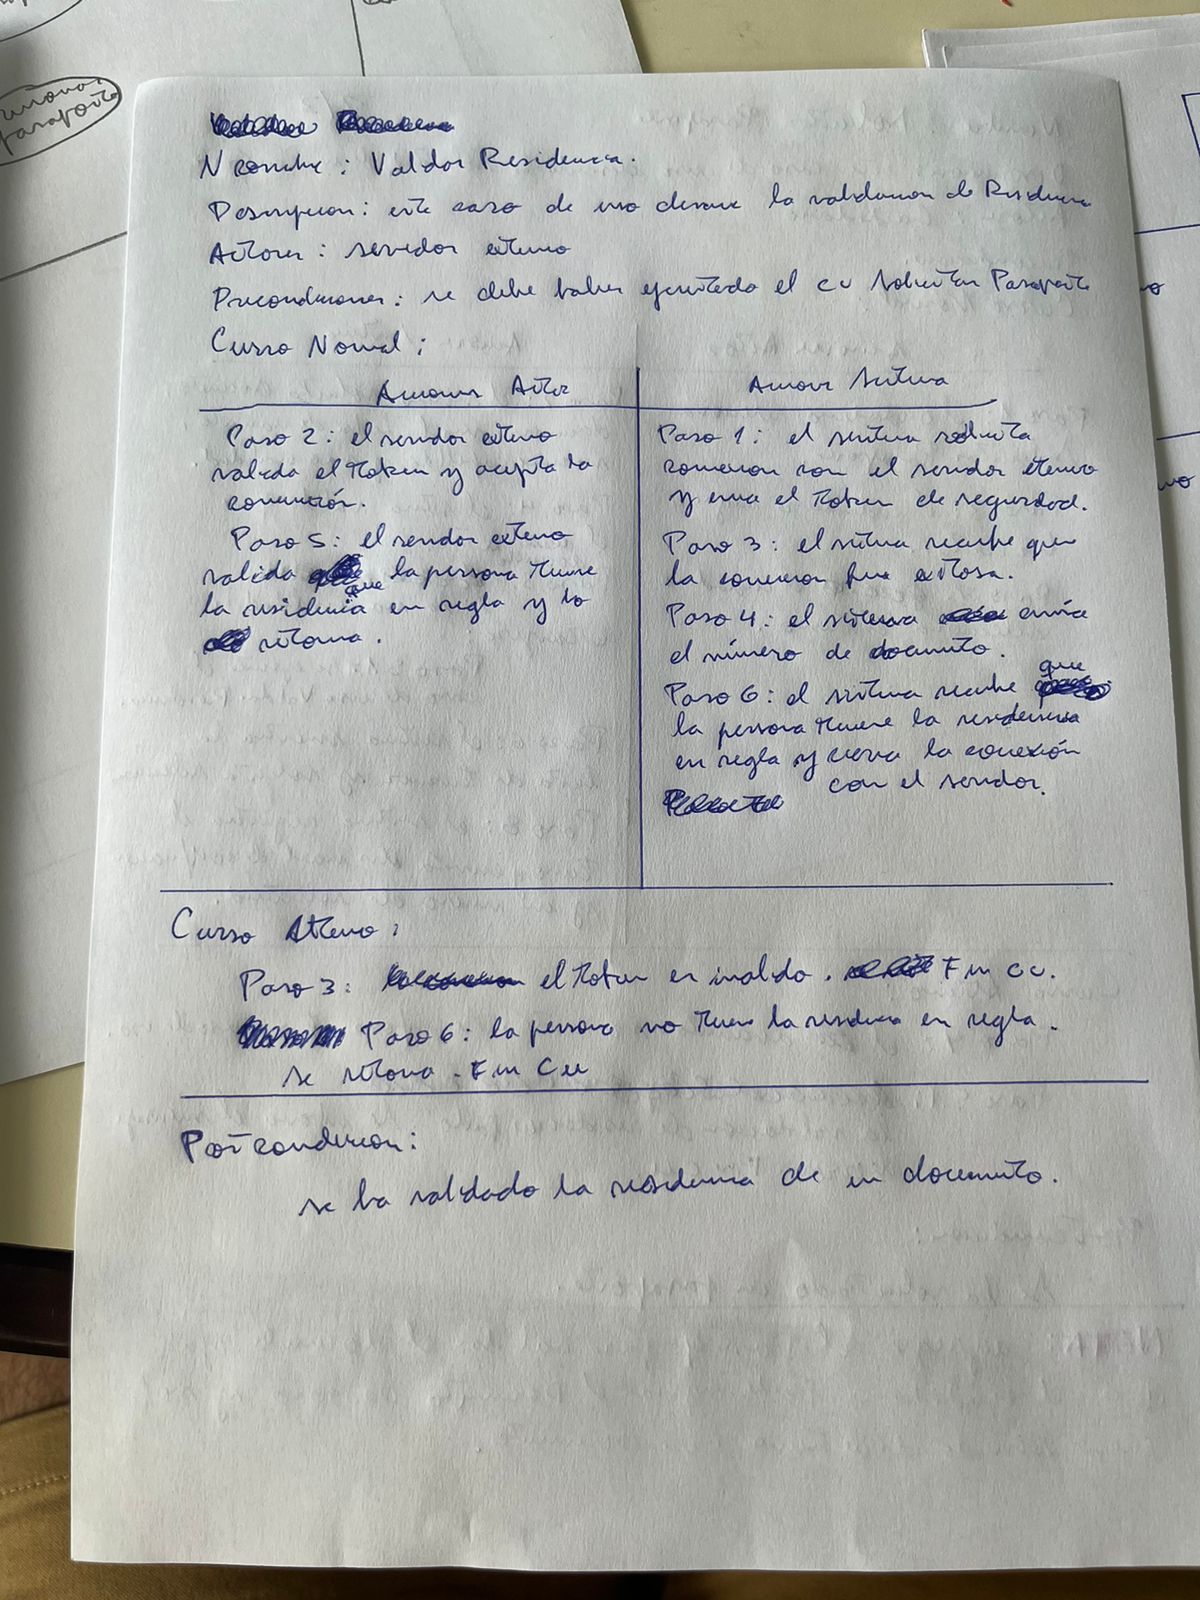 Nombre : Validar Residencia.
Descripcion : este caso de uso describe la validacion de Residencia
Actores : servidor externo
Precondiciones : se debe haber ejecutado el cu Solicitar Pasaporte
Curso Normal :
Acciones Actor
Acciones Sistema
Paso 2 : el servidor externo
valida el Token y acepta la
conexión.
Paso 5 : el servidor externo
valida que la persona tiene
la residencia en regla y lo
retorna.
Paso 1 : el sistema solicita
conexion con el servidor externo
y envia el Token de seguridad.
Paso 3 : el sistema recibe que
la conexion fue exitosa.
Paso 4 : el sistema envía
el número de documento.
Paso 6 : el sistema recibe que
la persona tiene la residencia
en regla y cierra la conexión
con el servidor.
Curso Alterno :
Paso 3 : el Token es invalido. Fin cu.
Paso 6 : la persona no tiene la residencia en regla.
se retorna. Fin Cu
Postcondicion :
se ha validado la residencia de un documento.